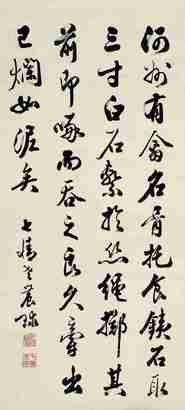 河州有禽名骨托食鐵石取
三寸白石繫於絲繩擲其
前即啄而吞之良久牽出
已爛如泥矣 七